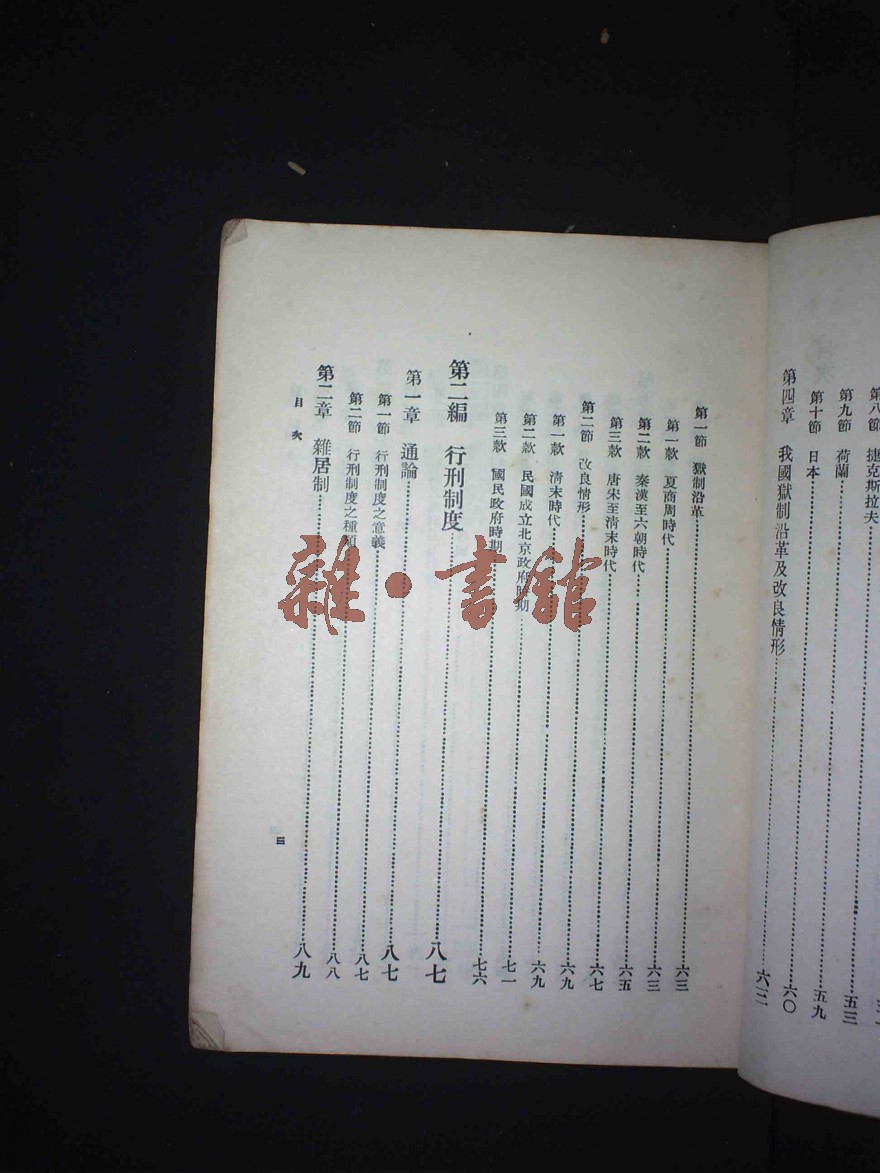 第八節 捷克斯拉夫……五三
第九節 荷蘭……五九
第十節 日本……六〇
第四章 我國獄制沿革及改良情形……六三
第一節 獄制沿革……六三
第一款 夏商周時代……六三
第二款 秦漢至六朝時代……六五
第三款 唐宋至清末時代……六七
第二節 改良情形……六九
第一款 清末時代……六九
第二款 民國成立北京政府時期……七一
第三款 國民政府時期……七六
第二編 行刑制度……八七
第一章 通論……八七
第一節 行刑制度之意義……八七
第二節 行刑制度之種類……八八
第二章 雜居制……八九
目次
三
雜·書館